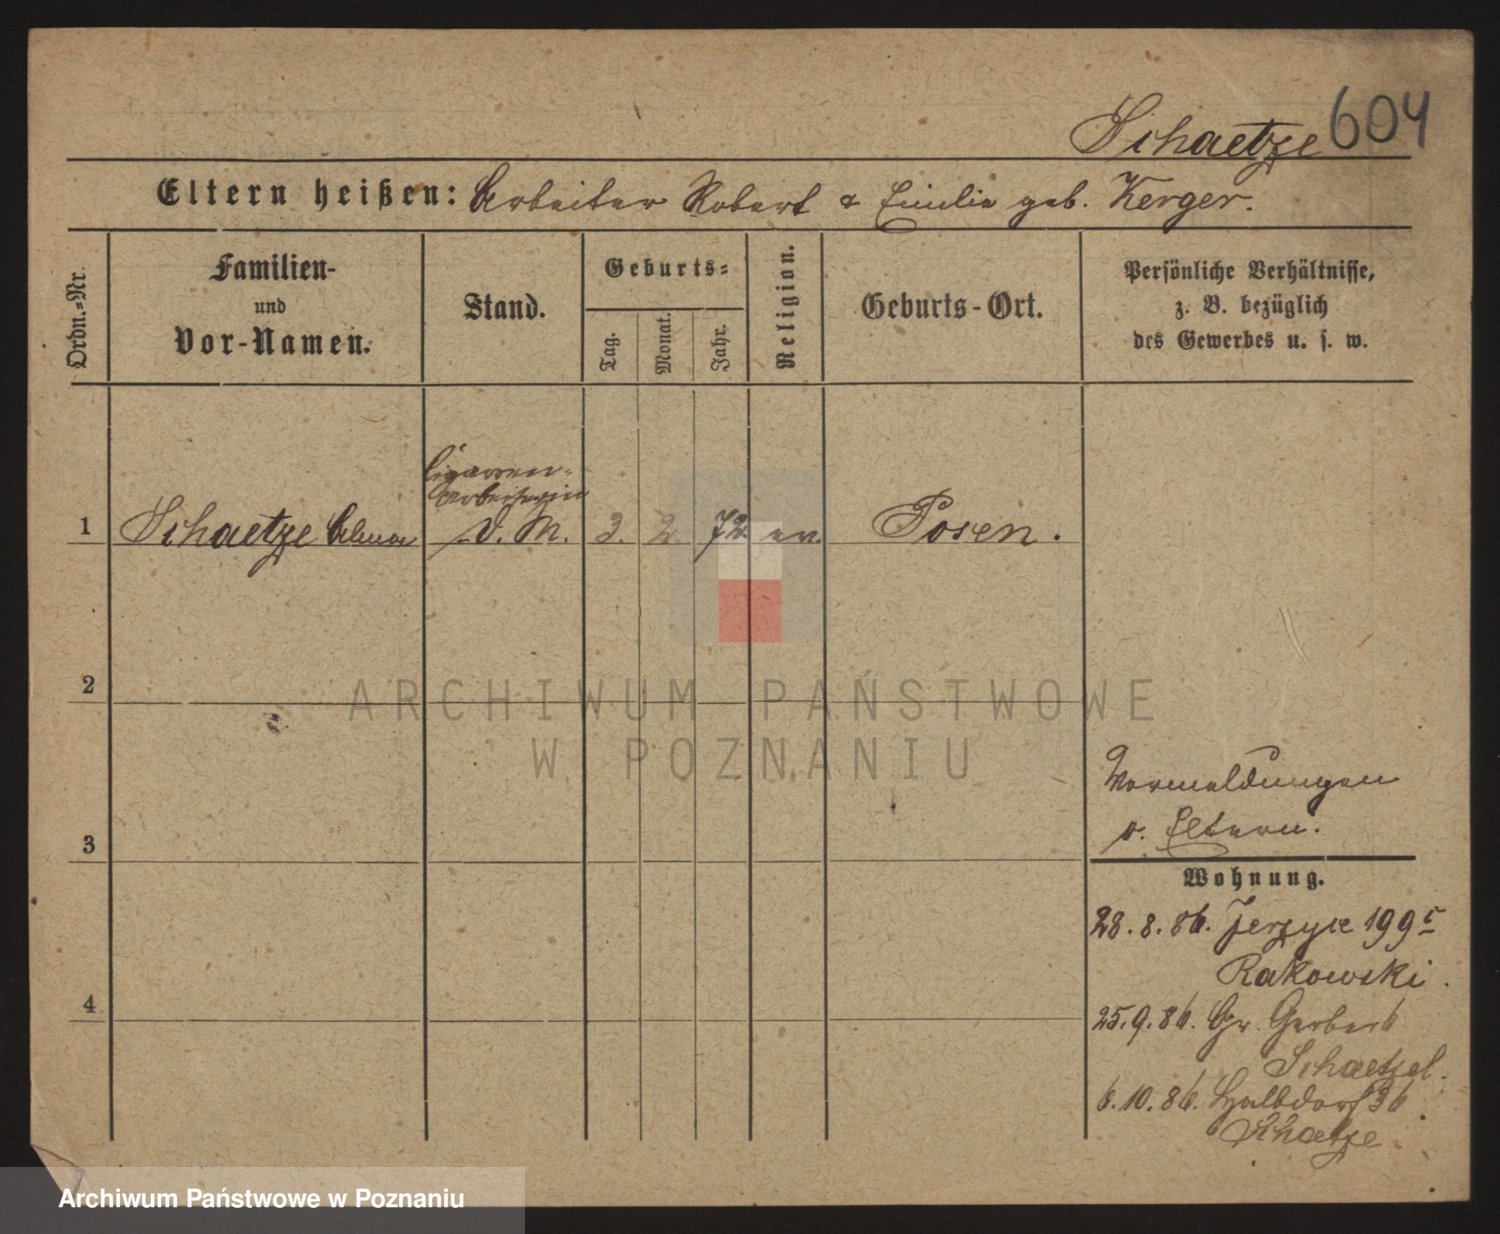 Schaetze 604
Eltern heißen: Arbeiter Robert & Emilie geb. Kerger.
Ordn.-Nr.
Familien-
und
Vor-Namen.
Stand.
Geburts-
Tag.
Monat.
Jahr.
Religion.
Geburts-Ort.
Persönliche Verhältnisse,
z. B. bezüglich
des Gewerbes u. s. w.
Cigarren-
arbeiterin
1 Schaetze D. M. 3. 2. 72. ev. Posen.
2
3
4
ARCHIWUM PAŃSTWOWE
W POZNANIU
Vormeldungen
s. Eltern.
Wohnung.
28. 8. 86. Jerzyce 199c
Rakowski.
25. 9. 86. Gr. Gerber 6
Schaetzel.
6. 10. 86. Halbdorf 36.
Schaetze.
Archiwum Państwowe w Poznaniu